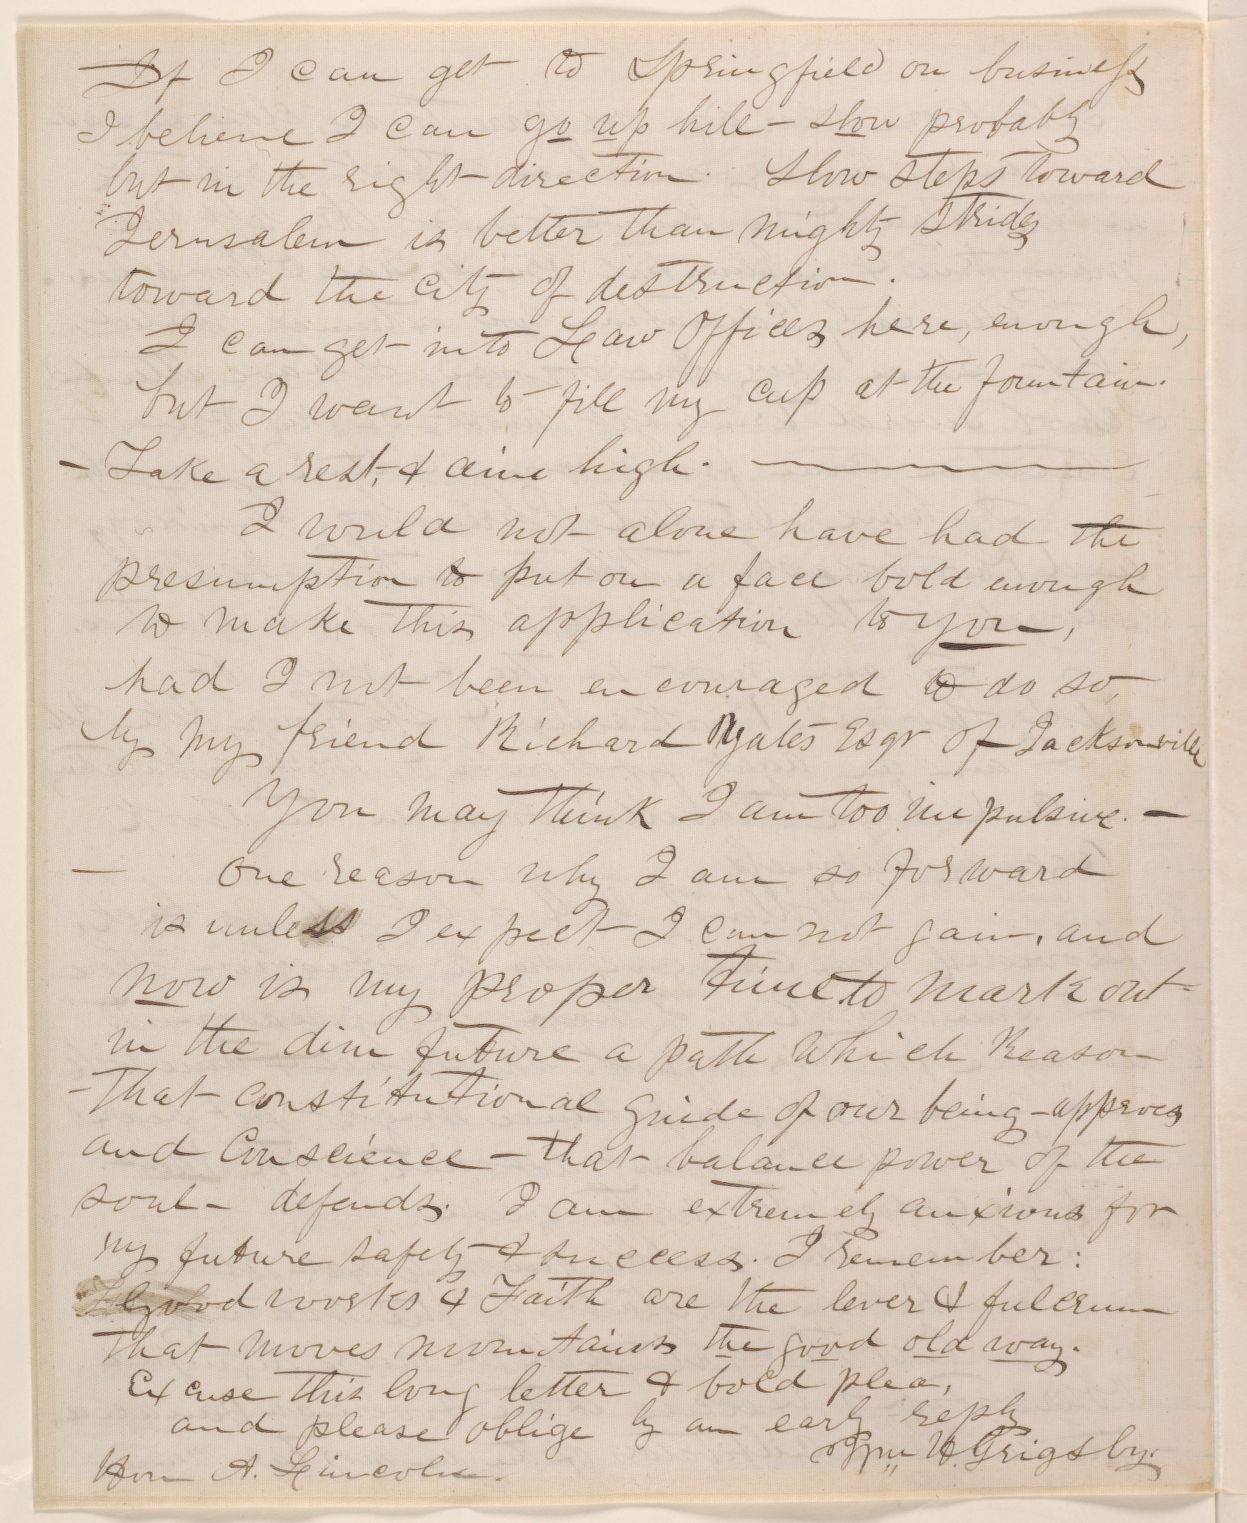 If I can get to Springfield on business
I believe I can go up hill - slow probably
but in the right direction. Slow steps toward
Jerusalem is better than mighty strides
toward the city of destruction.
I can get into Law Offices here, enough,
but I want to fill my cup at the fountain.
- Take a rest, & aim high.
I would not alone have had the
presumption to put on a face bold enough
to make this application to you,
had I not been encouraged to do so,
by my friend Richard Yates Esqr of Jacksonville
You may think I am too impulsive. -
- One reason why I am so forward
is unless I expect I can not gain, and
now is my proper time to mark out
in the dim future a path which Reason
- that constitutional guide of our being - approves
and Conscience - that balance power of the
soul - defends. I am extremely anxious for
my future safety & success. I remember:
good works & Faith are the lever & fulcrum
that moves mountains the good old way.
Excuse this long letter & bold plea,
and please oblige by an early reply
Wm H. Grigsby.
Hon A. Lincoln.